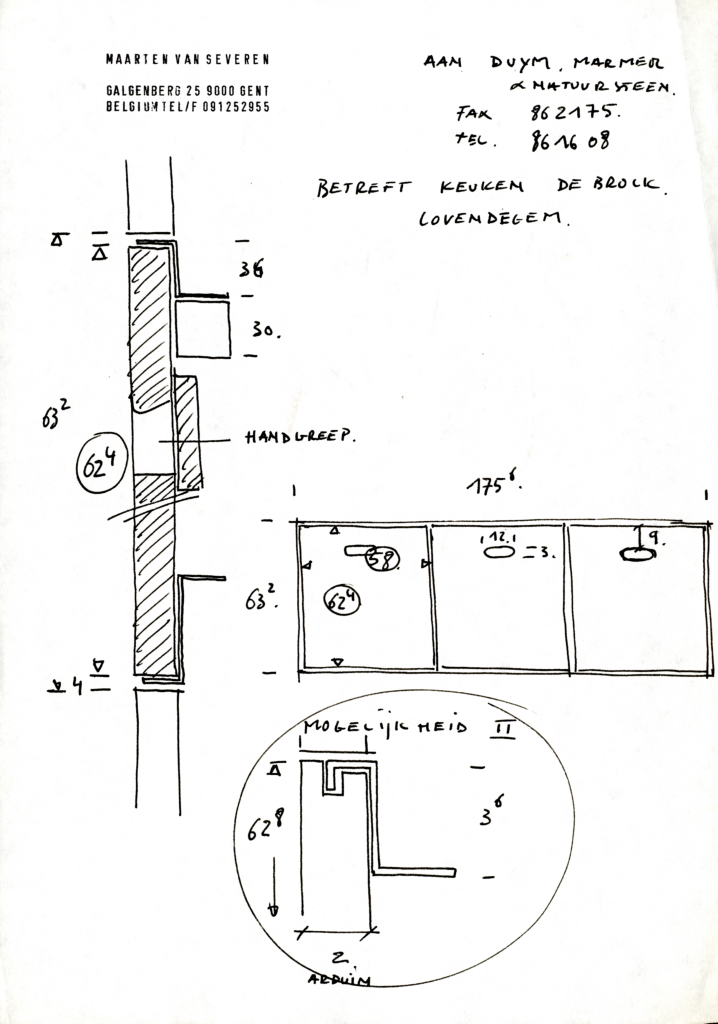 MAARTEN VAN SEVEREN
GALGENBERG 25 9000 GENT
BELGIUM TEL/F 091252955
AAN DUYM. MARMER
& NATUURSTEEN.
FAX 862175.
TEL. 861608
BETREFT KEUKEN DE BROCK.
LOVENDEGEM.
36
30.
63²
62⁴
HANDGREEP.
175⁶.
58.
12.
3.
9.
63².
62⁴
4
MOGELIJKHEID II
62⁸
3⁶
2.
ARDUIN